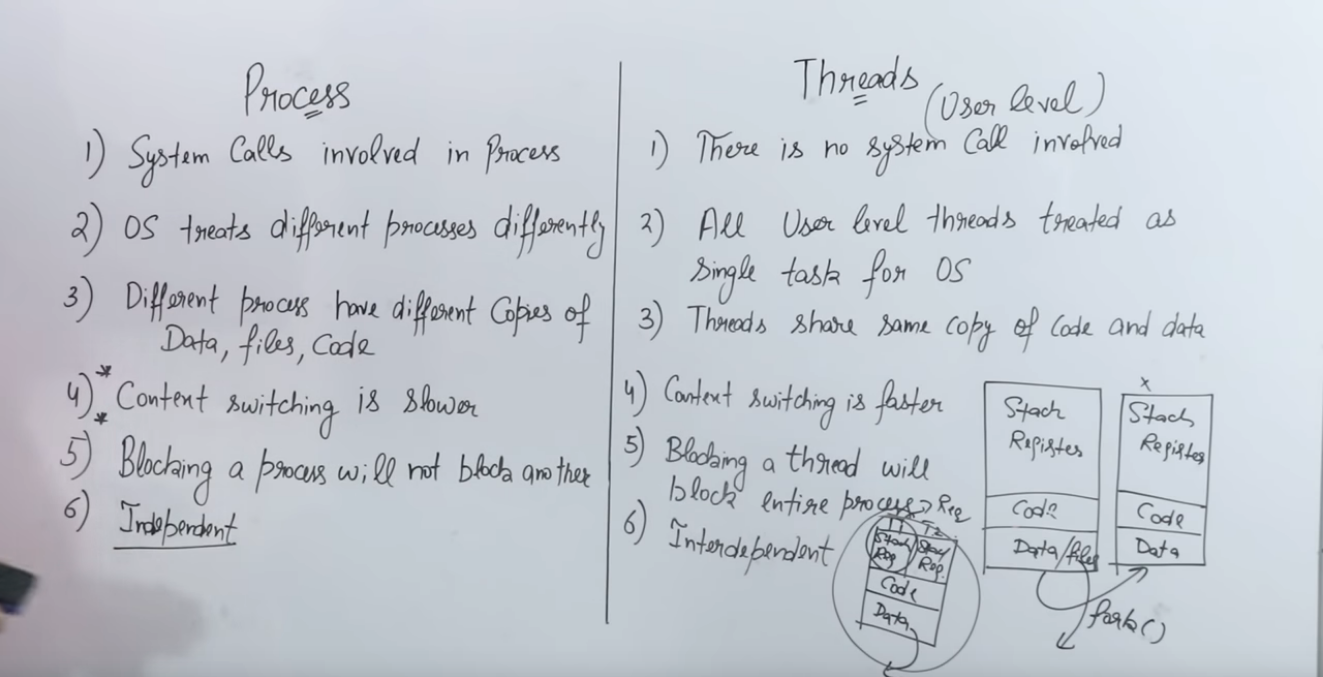 Process
1) System Calls involved in Process
2) OS treats different processes differently
3) Different process have different Copies of
Data, files, Code
4)** Context switching is slower
5) Blocking a process will not block another
6) Independent
Threads (User level)
1) There is no system Call involved
2) All User level threads treated as
single task for OS
3) Threads share same copy of code and data
4) Context switching is faster
5) Blocking a thread will
block entire process → Reg
6) Interdependent
T1 T2
Stack Stack
Reg Reg.
Code
Data
Stack
Register
Code
Data/files
x
Stack
Register
Code
Data
fork()